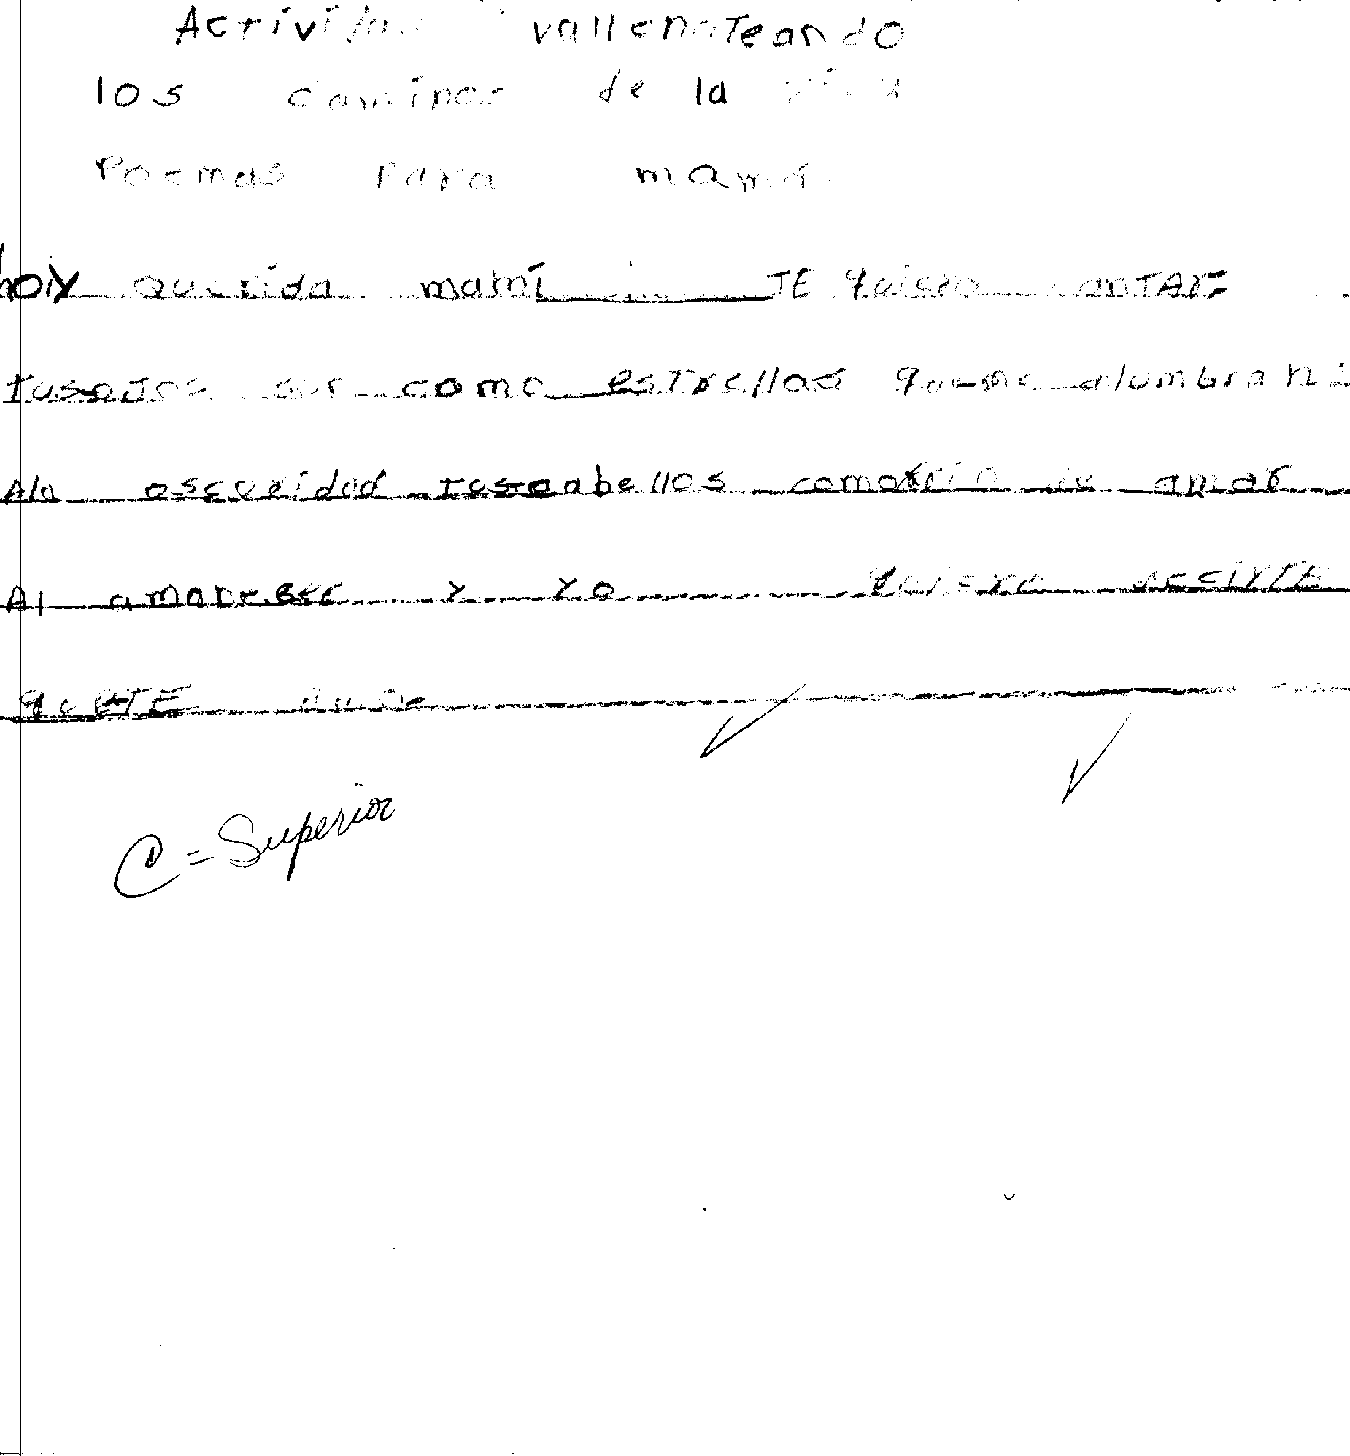 Actividad vallenateando
los caminos de la vida
Poemas para mamá
hoy querida mami TE quiero cantar
tus ojos son como estrellas que me alumbran
Ala oscuridad tus cabellos como de amar
Al amaneser y yo quiero decirte
que TE
C = Superior